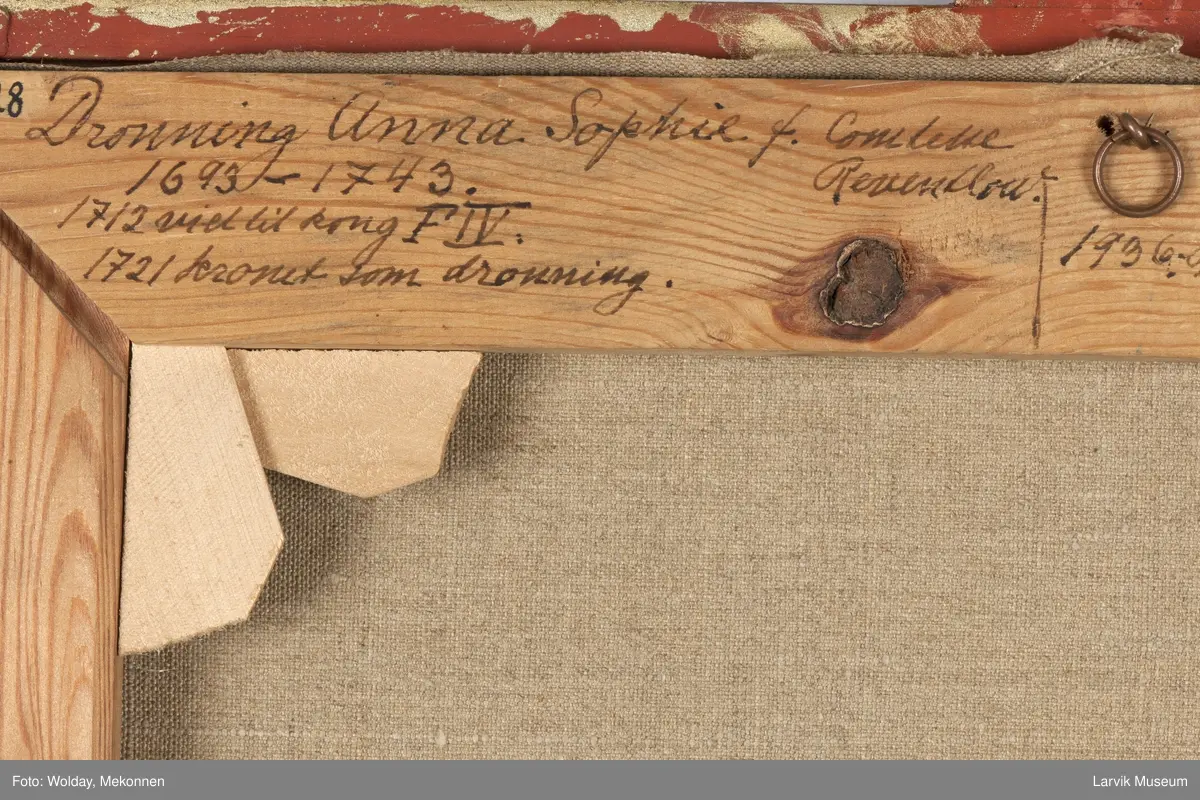 28 Dronning Anna Sophie f. Comtesse
Revendlow.
1693 – 1743.
1712 viet til kong F IV.
1721 kronet som dronning.
1936
Foto: Wolday, Mekonnen
Larvik Museum